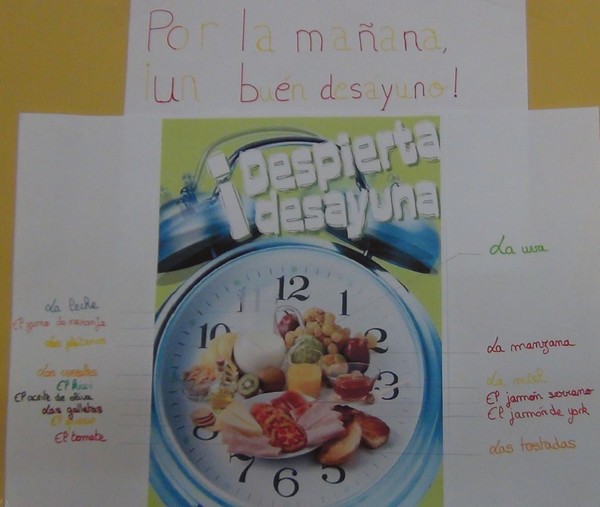 Por la mañana,
¡un buén desayuno!
¡Despierta
desayuna
La uva
La leche
El zumo de naranja
Los plátanos
Los cereales
El kiwi
El aceite de oliva
Las galletas
El tomate
La manzana
La miel
El jamón serrano
El jamón de york
Las tostadas
12
1
2
3
5
6
7
8
9
10